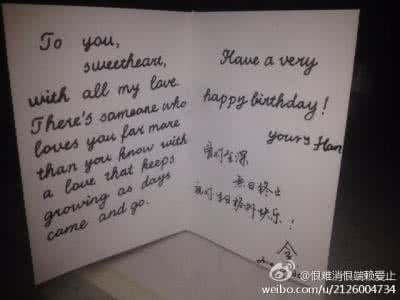 To you,
sweetheart,
with all my love.
There's someone who
loves you far more
than you know with
a love that keeps
growing as days
came and go.
Have a very
happy birthday!
yours Han
爱你至深
无日终止
祝你生日格外快乐!
@恨难消恨端赖爱止
weibo.com/u/2126004734